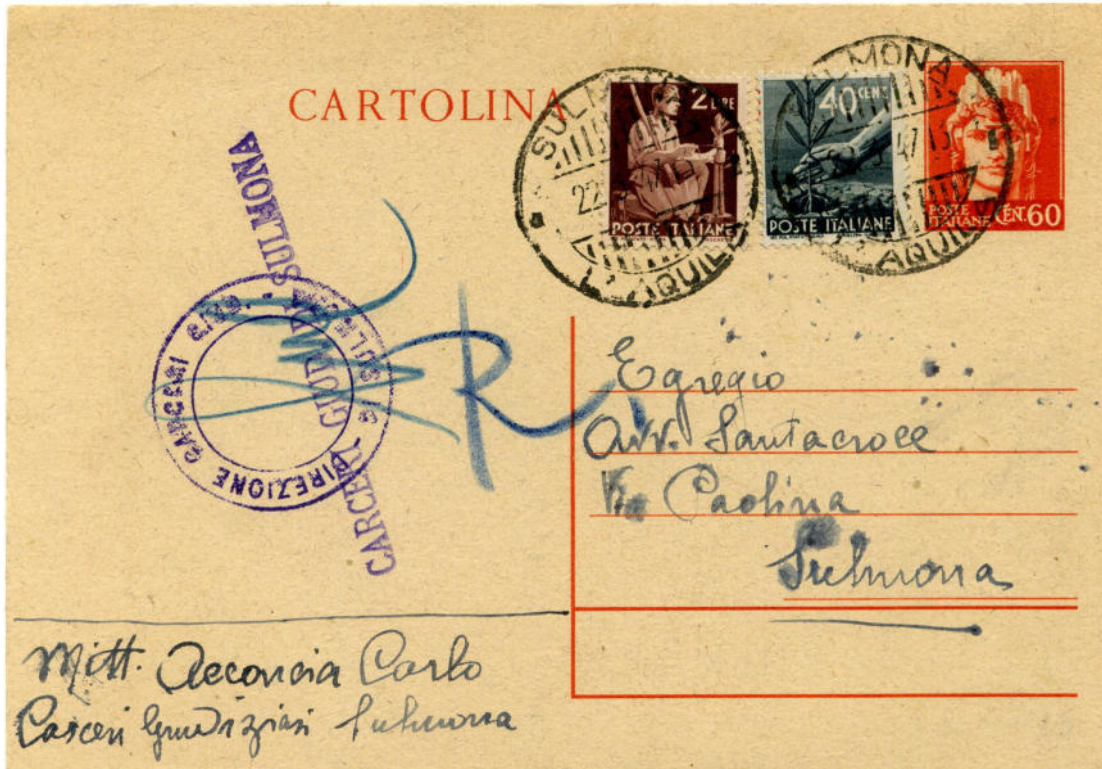 CARTOLINA
SULMONA
22
47
L'AQUILA
2 LIRE
POSTE ITALIANE
40 CENT
POSTE ITALIANE
SULMONA
47
L'AQUILA
POSTE
ITALIANE CENT. 60
CARCERI GIUDIZ. SULMONA
DIREZIONE CARCERI GIUD.
SULMONA
R
Egregio
Avv. Santacroce
Via Paolina
Sulmona
Mitt. Acconcia Carlo
Carceri Giudiziari Sulmona